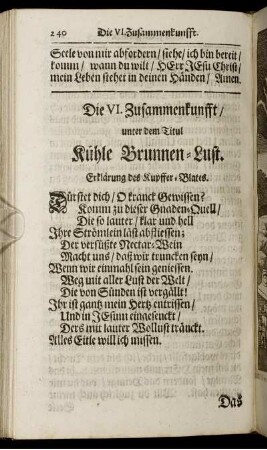 240 Die VI. Zusammenkunfft.
Seele von mir abfordern / siehe / ich bin bereit /
komm / wann du wilt / HErr JEsu Christ /
mein Leben stehet in deinen Händen / Amen.
Die VI. Zusammenkunfft /
unter dem Titul
Kühle Brunnen-Lust.
Erklärung des Kupffer-Blates.
Dürstet dich / O kranck Gewissen?
Komm zu dieser Gnaden-Quell /
Die so lauter / klar und hell
Ihre Strömlein läst abfliessen;
Der versüßte Nectar-Wein
Macht uns / daß wir truncken seyn /
Wenn wir einmahl sein geniessen.
Weg mit aller Lust der Welt /
Die von Sünden ist vergällt!
Ihr ist gantz mein Hertz entrissen /
Und in JEsum eingesenckt /
Ders mit lauter Wollust tränckt.
Alles Eitle will ich missen.
Das